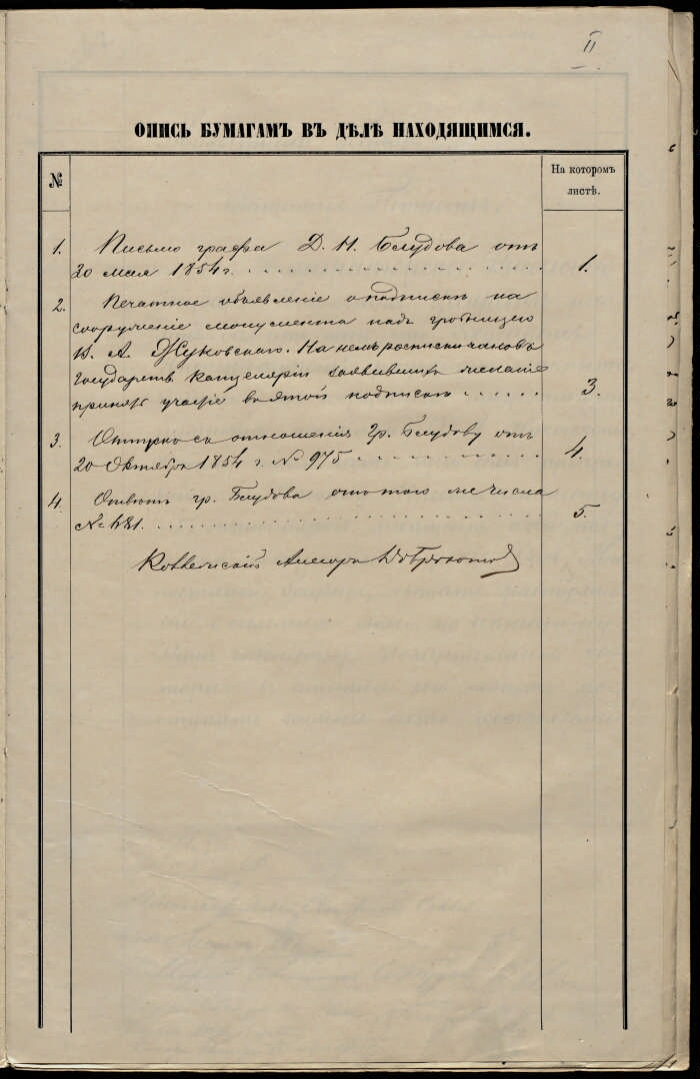 II
ОПИСЬ БУМАГАМЪ ВЪ ДѢЛѢ НАХОДЯЩИМСЯ.
№
На которомъ
листѣ.
1. Письмо графа Д. Н. Блудова отъ
20 мая 1854 г. 1.
2. Печатное объявленіе о подпискѣ на
сооруженіе монумента надъ гробницею
В. А. Жуковскаго. На немъ росписки чиновъ
Государств. Канцеляріи заявившихъ желаніе
принять участіе въ этой подпискѣ 3.
3. Отпускъ съ отношенія Гр. Блудову отъ
20 Октября 1854 г. № 975 4.
4. Отвѣтъ гр. Блудова отъ того же числа
№ 5.
Коллежскій